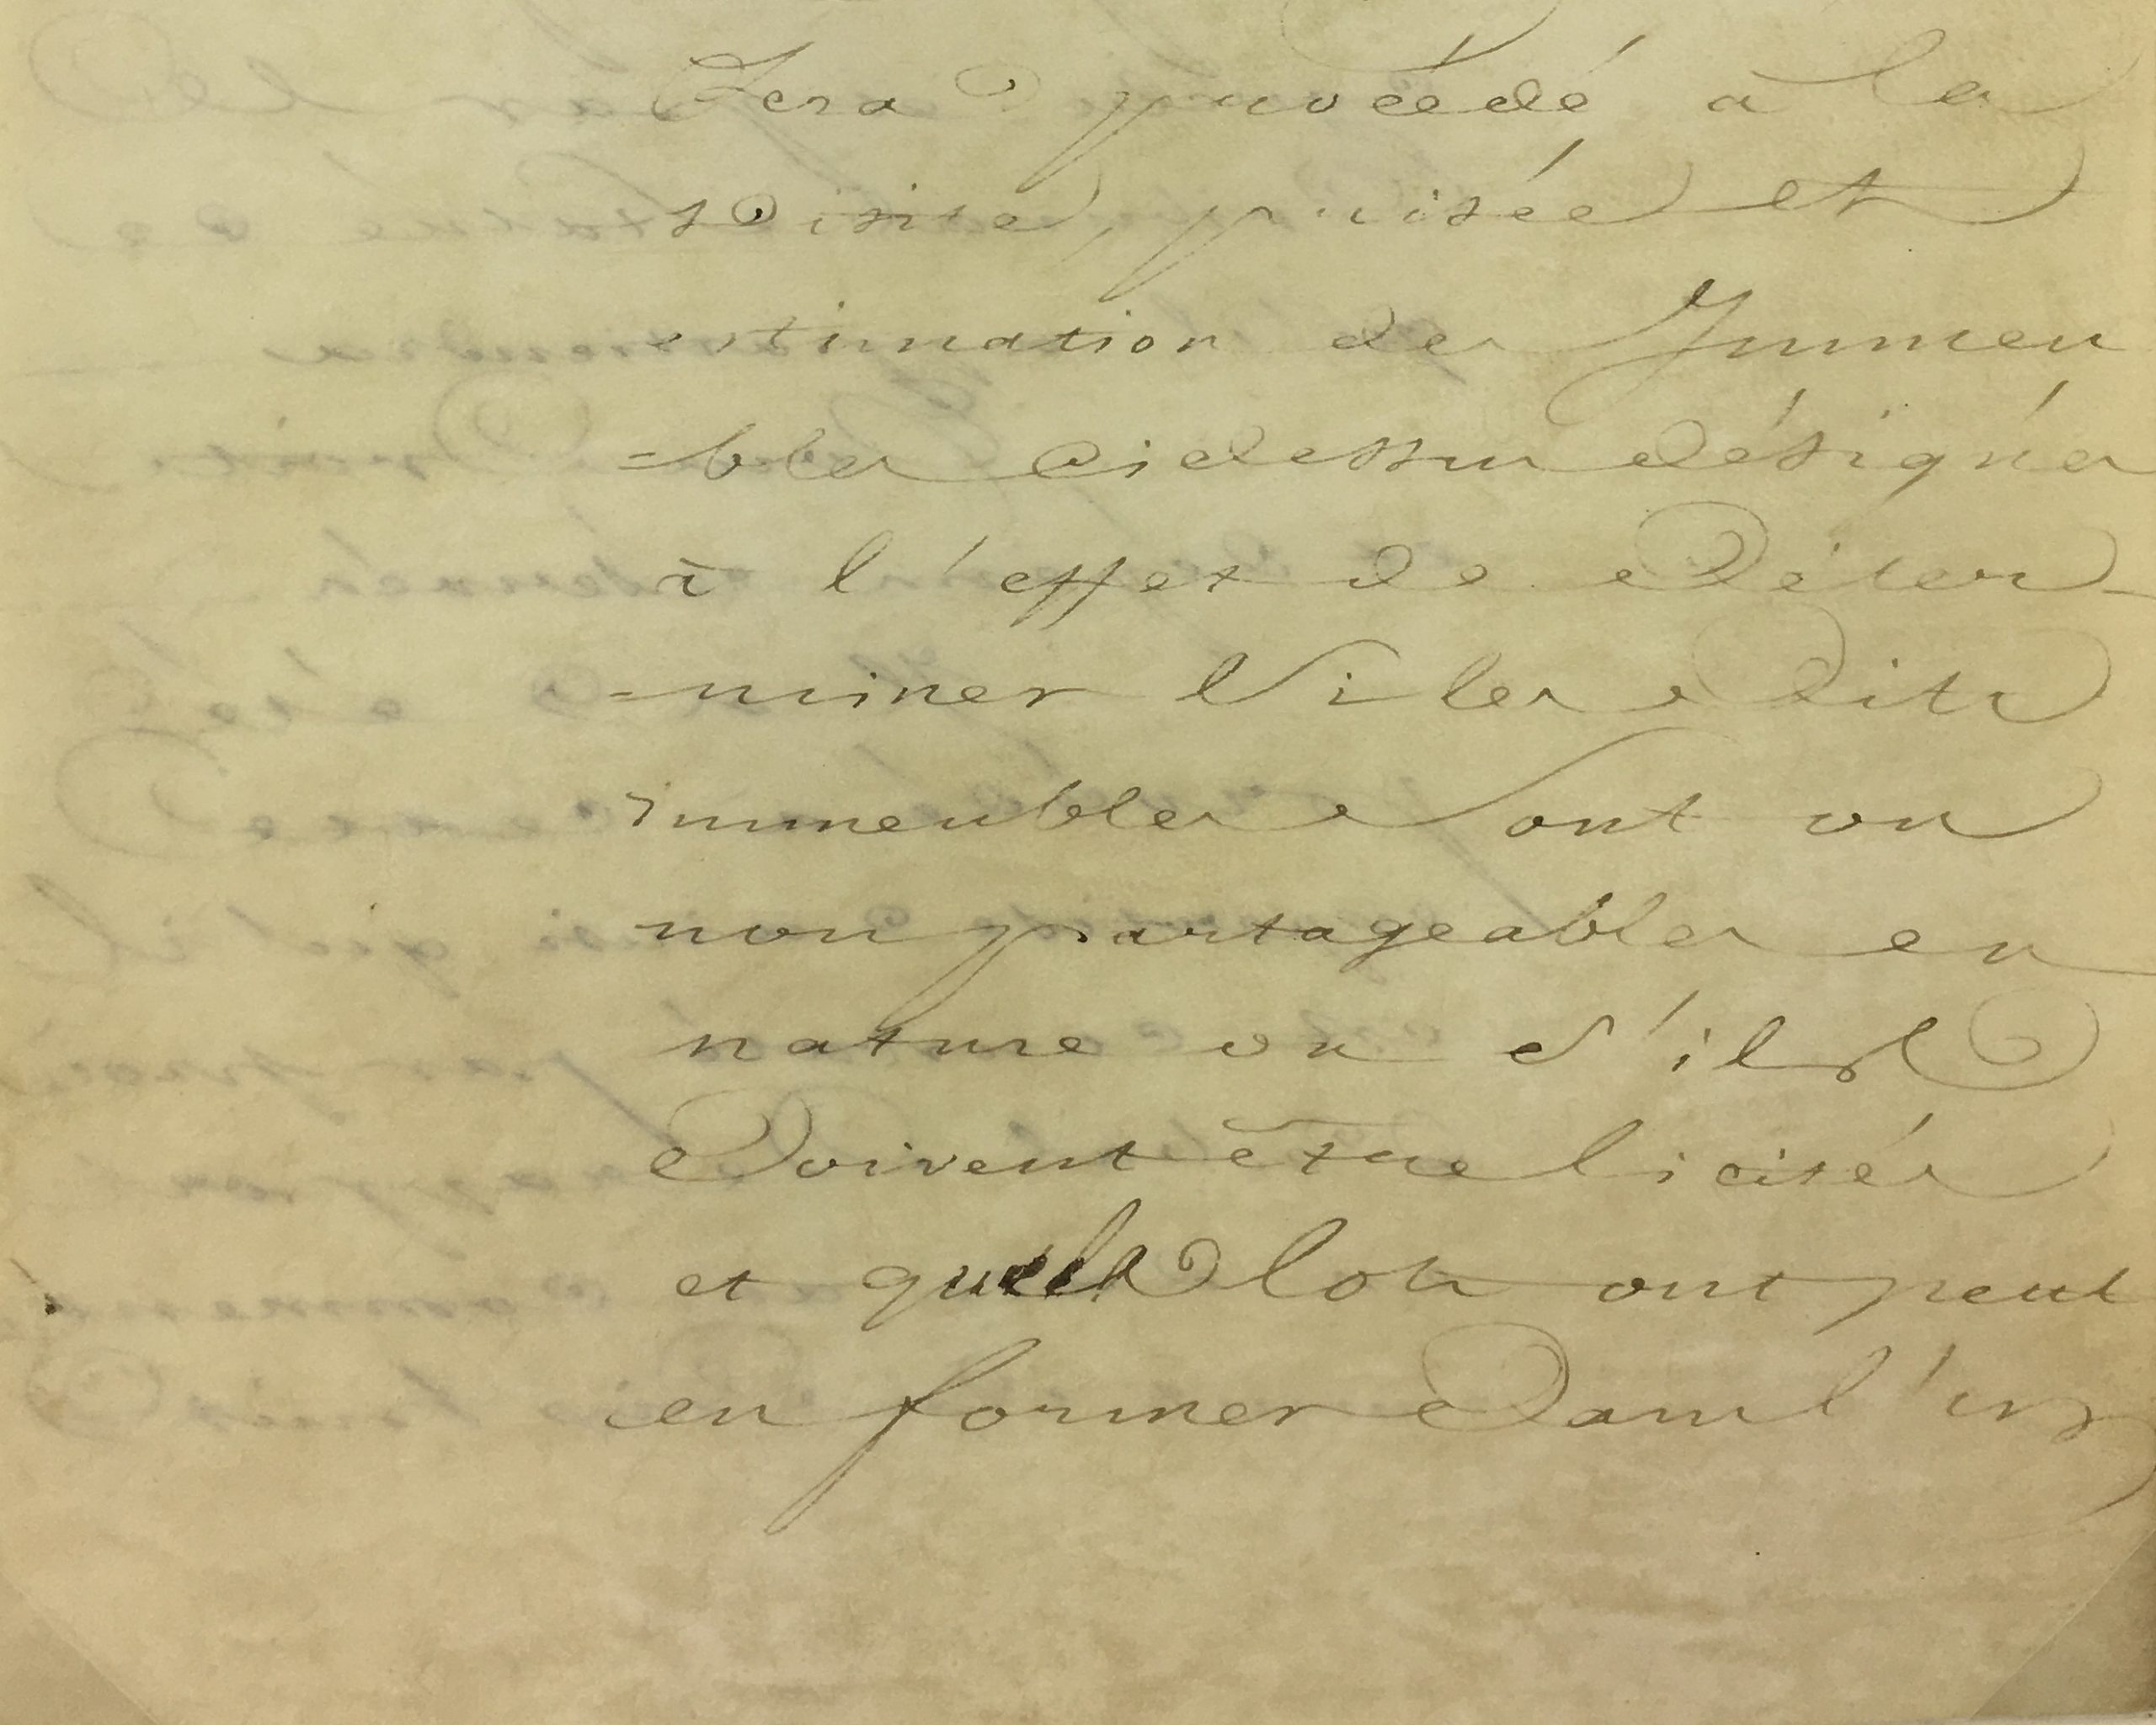 Sera procédé à la
visite, prisée et
estimation des Immeu
=bles cidessus désignés
à l'effet de déter-
=miner Si les dits
immeubles sont ou
non partageables en
nature ou s'ils
doivent être licités
et quels lots ont peut
en former dans l'un